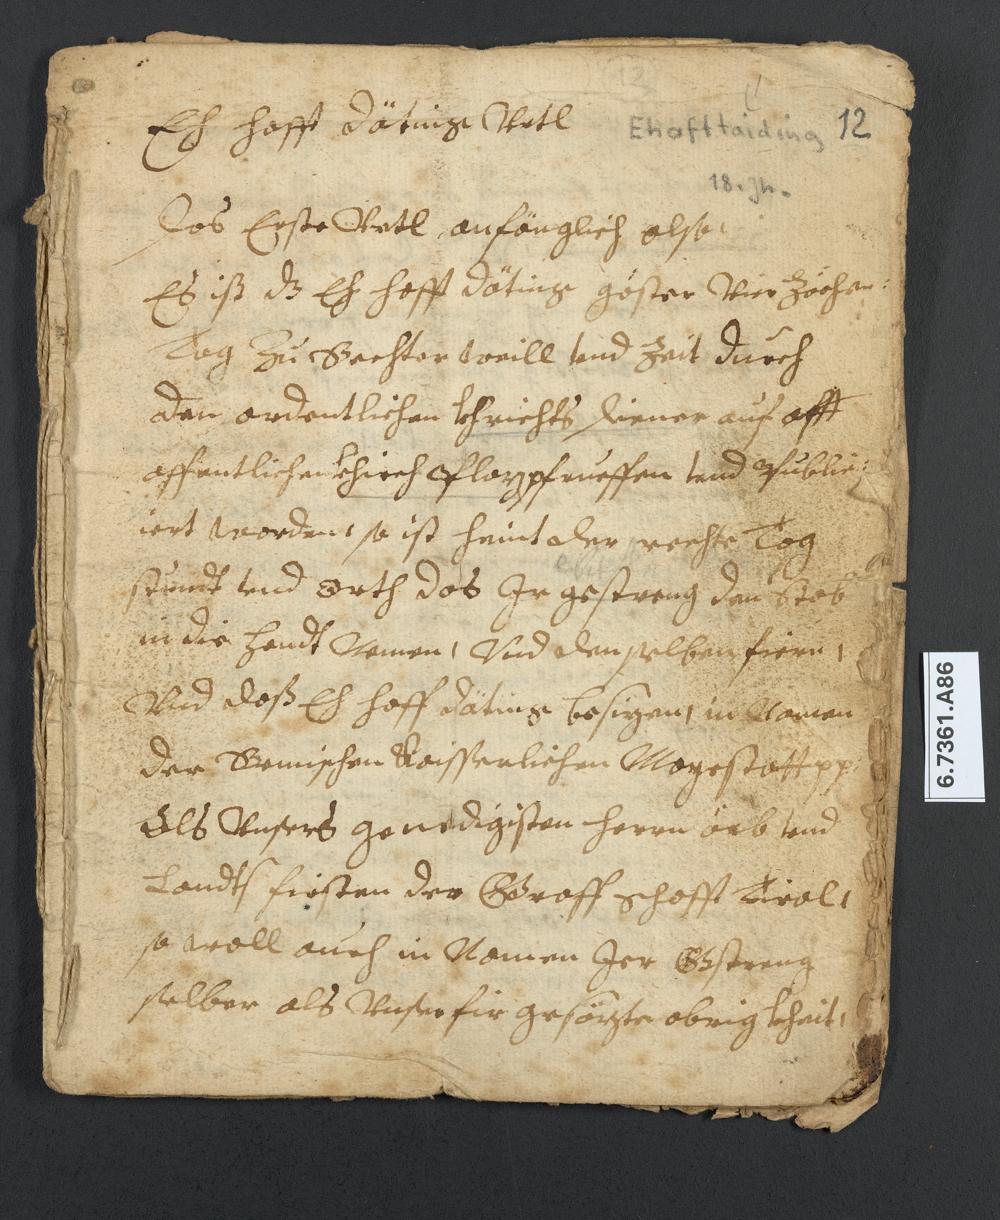 Eh hafft dätings Vrtl
Ehafttaiding 12
18. Jh.
Das Erste Vrtl anfänglich also:
Es ist dz Eh hafft dätings göster Vier Zöchen:
Tag Zu Rechter weill vnd Zeit durch
den ordentlichen khrichts diener auf offt
offentlichen khirch rueffen vnd Publi:
iert worden, so ist heint der rechte Tag
stundt vnd orth das Ir gestreng den Stab
in die handt Nemen, Vnd denselben fiern,
Vnd daß Eh haff dätings besizen, in Namen
der Remischen Kaisserlichen Mayestatt pp:
Als Vnsers genedigisten herrn vnd
Landts firsten der Graff schafft Tirol,
so woll auch in Namen Irer Gstreng
selber als Vnser fir gesözte obrigkheit,
6.7361.A86